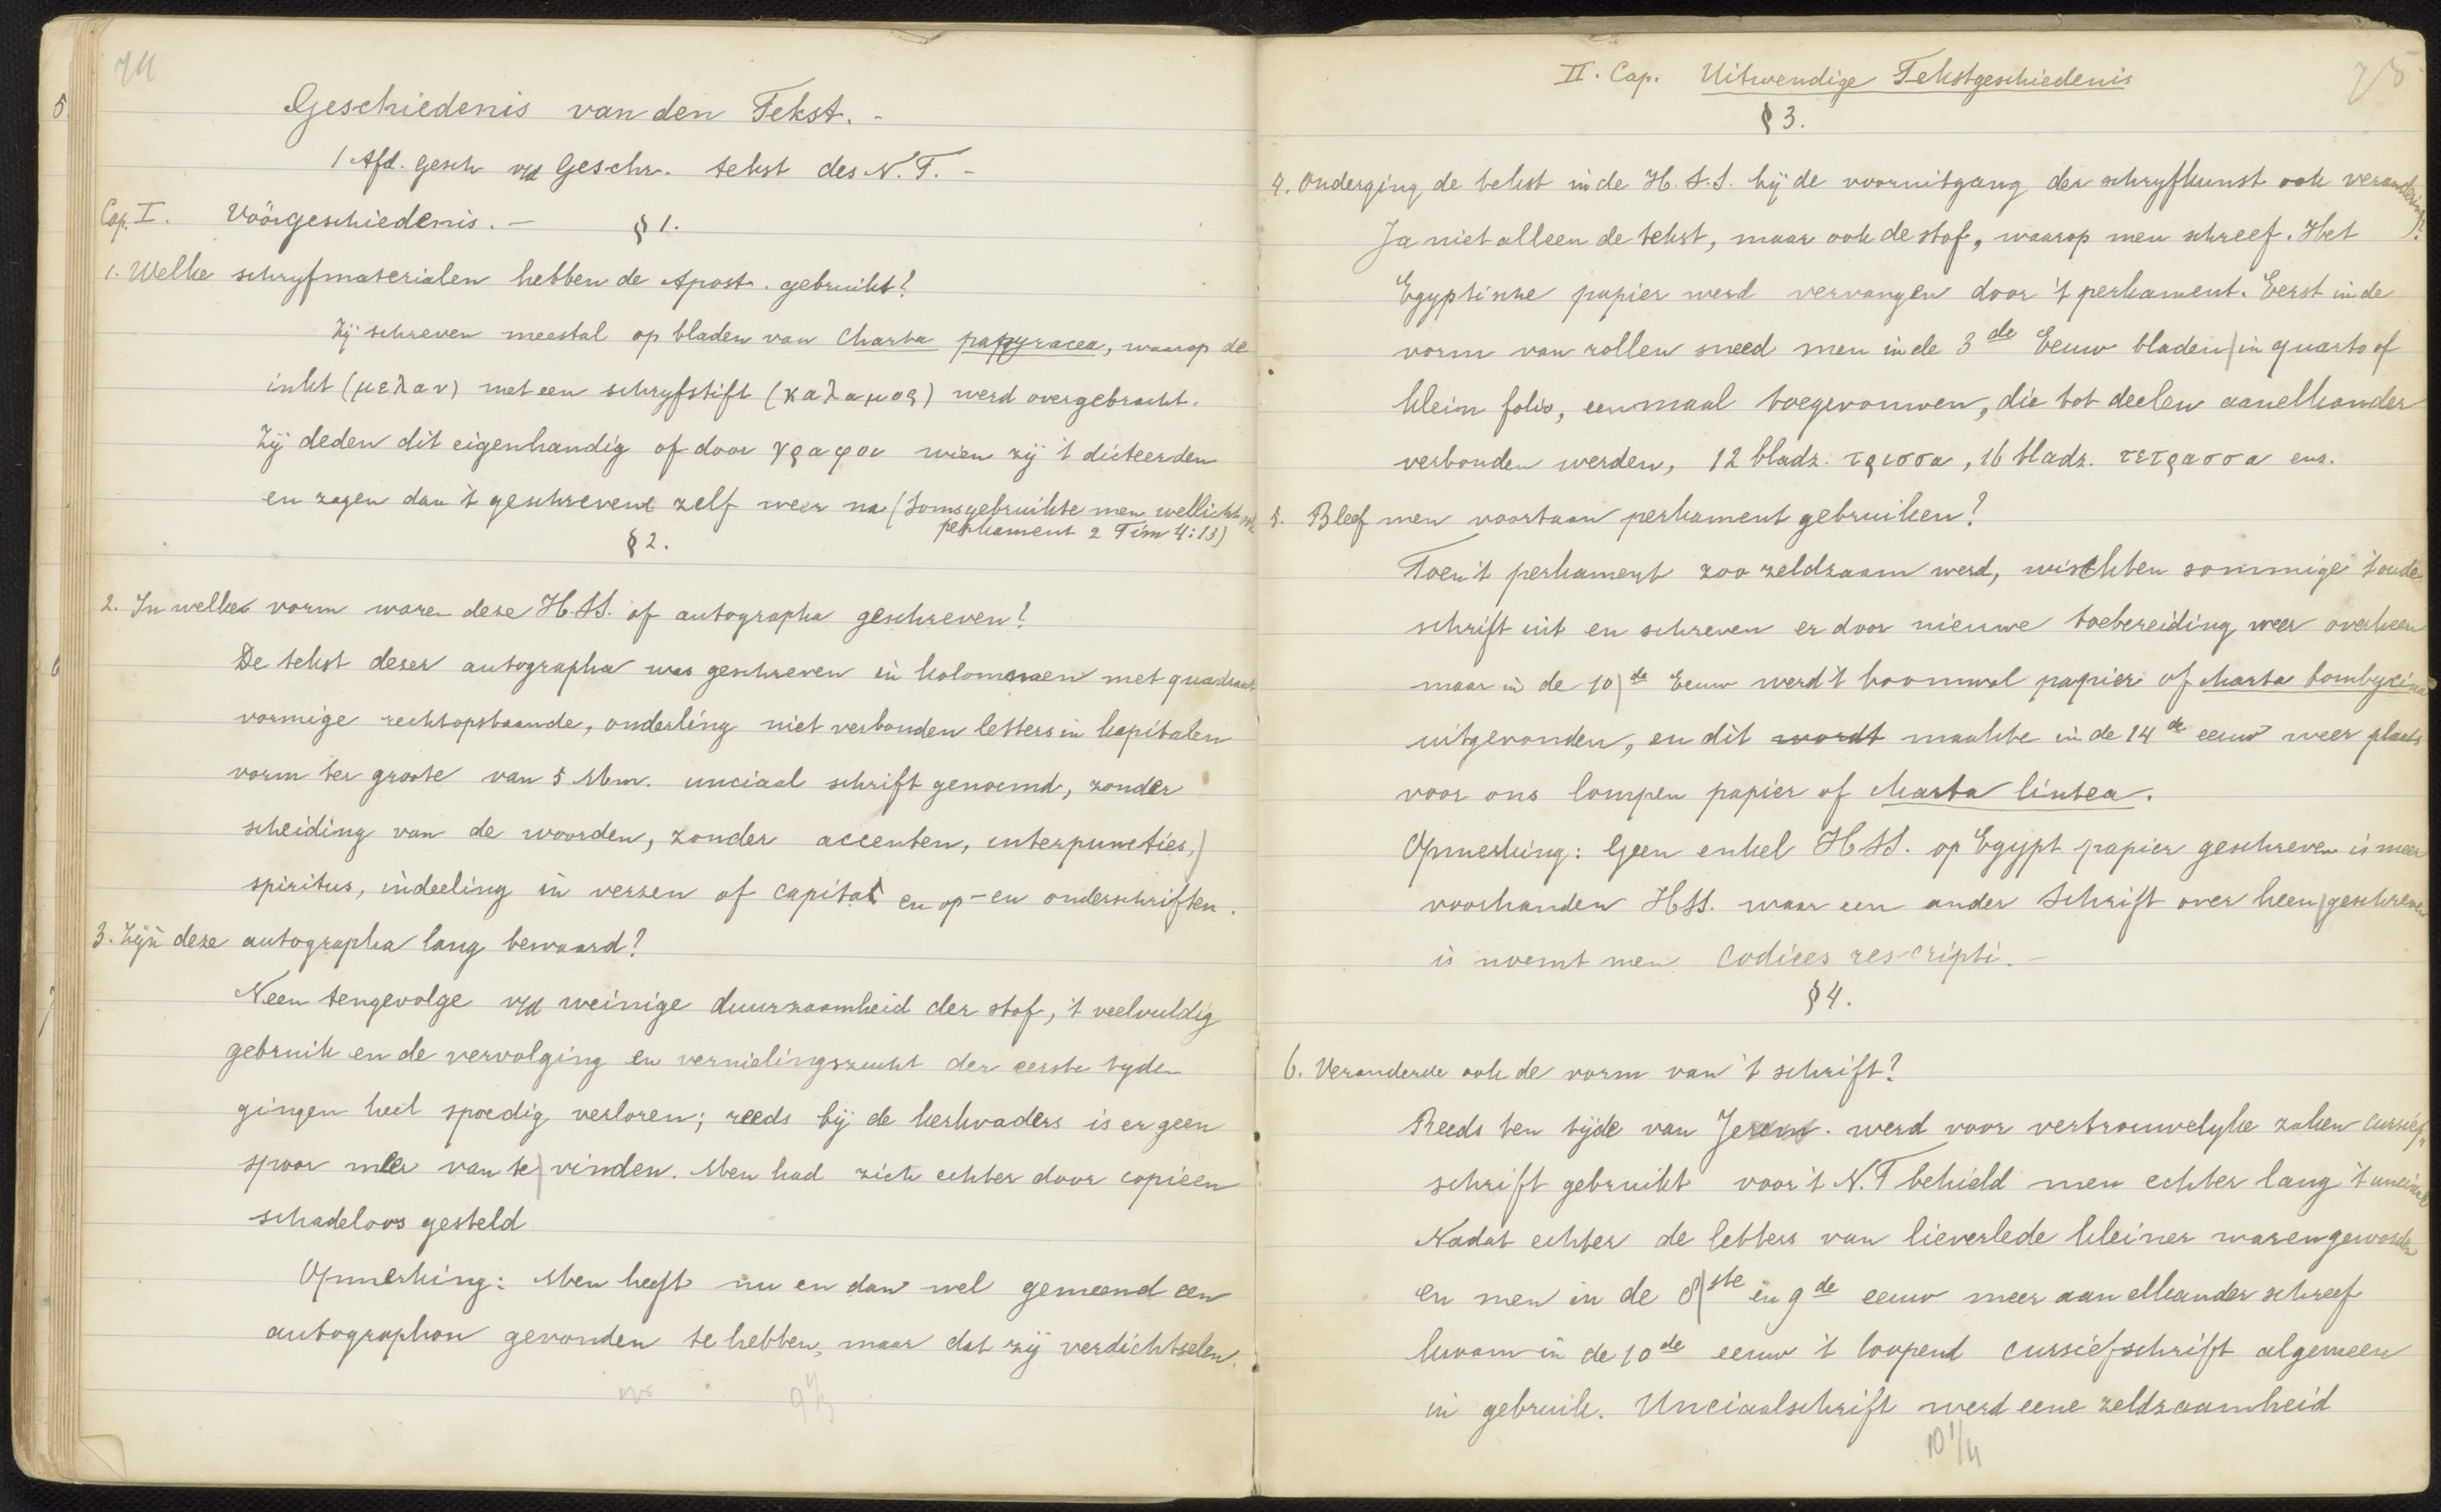 74
Geschiedenis van den Tekst. -
1 Afd. Gesch v/d Geschr. tekst des N. T. -
Cap. I. Voorgeschiedenis. - § 1.
1. Welke schryfmaterialen hebben de Apost. gebruikt?
Zij schreven meestal op bladen van Charta papyracea, waarop de
inkt (μελαν) met een schryfstift (καλαμος) werd overgebracht.
Zij deden dit eigenhandig of door γραφοι wien zij 't dicteerden
en zagen dan 't geschrevene zelf weer na (soms gebruikte men wellicht ook
perkament 2 Tim 4:13)
§ 2.
2. In welken vorm waren deze H.SS. of autographa geschreven?
De tekst dezer autographa was geschreven in kolommen met quadraat
vormige rechtopstaande, onderling niet verbonden letters in kapitalen
vorm ter groote van 5 M.m. unciaal schrift genoemd, zonder
scheiding van de woorden, zonder accenten, interpuncties,
spiritus, indeeling in verzen of capita en op- en onderschriften.
3. Zijn deze autographa lang bewaard?
Neen tengevolge v/d weinige duurzaamheid der stof, 't veelvuldig
gebruik en de vervolging en vernielingszucht der eerste tyden
gingen heel spoedig verloren; reeds bij de kerkvaders is er geen
spoor meer van te vinden. Men had zich echter door copieen
schadeloos gesteld
Opmerking: Men heeft nu en dan wel gemeend een
autographon gevonden te hebben, maar dat zij verdichtselen.
75
II. Cap. Uitwendige Tekstgeschiedenis
§ 3.
4. Onderging de tekst in de H.S.S. bij de vooruitgang der schryfkunst ook verandering?
Ja niet alleen de tekst, maar ook de stof, waarop men schreef. Het
Egyptische papier werd vervangen door 't perkament. Eerst in de
vorm van rollen sneed men in de 3de Eeuw bladen in quarto of
klein folio, eenmaal toegevouwen, die tot deelen aanelkander
verbonden werden, 12 bladz. τρισσα, 16 bladz. τετρασσα enz.
5. Bleef men voortaan perkament gebruiken?
Toen 't perkament zoo zeldzaam werd, wischten sommige 't oude
schrift uit en schreven er door nieuwe toebereiding weer overheen
maar in de 10de Eeuw werd 't boomwol papier of charta bombycina
uitgevonden, en dit wordt maakte in de 14de eeuw weer plaats
voor ons lompen papier of charta lintea.
Opmerking: Geen enkel HSS. op Egypt papier geschreven is meer
voorhanden HSS. waar een ander schrift over heen geschreven
is noemt men codices rescripti. -
§ 4.
6. Veranderde ook de vorm van 't schrift?
Reeds ten tijde van Jerem. werd voor vertrouwelyke zaken cursief-
schrift gebruikt voor 't N.T behield men echter lang 't unciaal
Nadat echter de letters van lieverlede kleiner waren geworden
en men in de 8ste en 9de eeuw meer aan elkander schreef
kwam in de 10de eeuw 't loopend cursiefschrift algemeen
in gebruik. Unciaalschrift werd eene zeldzaamheid
10 1/4